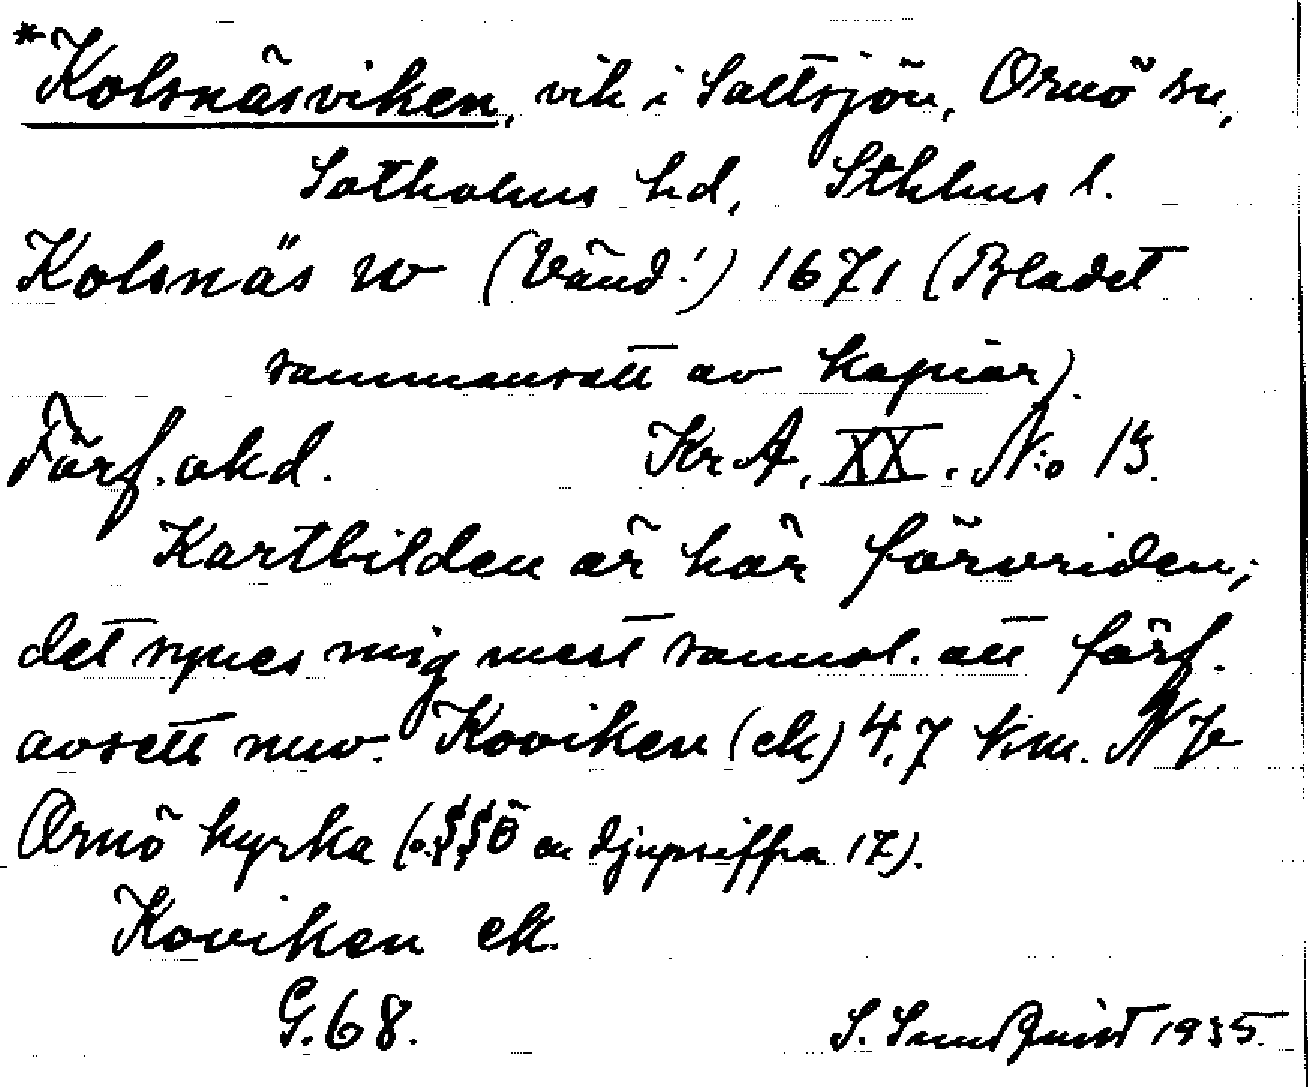 *Kolsnäsviken, vik i Saltsjön, Ornö sn,
Sotholms hd, Sthlms l.
Kolsnäs w (Vänd!) 1671 (Bladet
sammansatt av kopior)
Förf. okd. KrA, XX. N:o 13.
Kartbilden är här förvriden;
det synes mig mest sannol. att förf.
avsett nuv. Koviken (ek) 4,7 km. N
Ornö kyrka ( en djupsiffra 17).
Koviken ek.
G.68. S. Sundquist 1935.